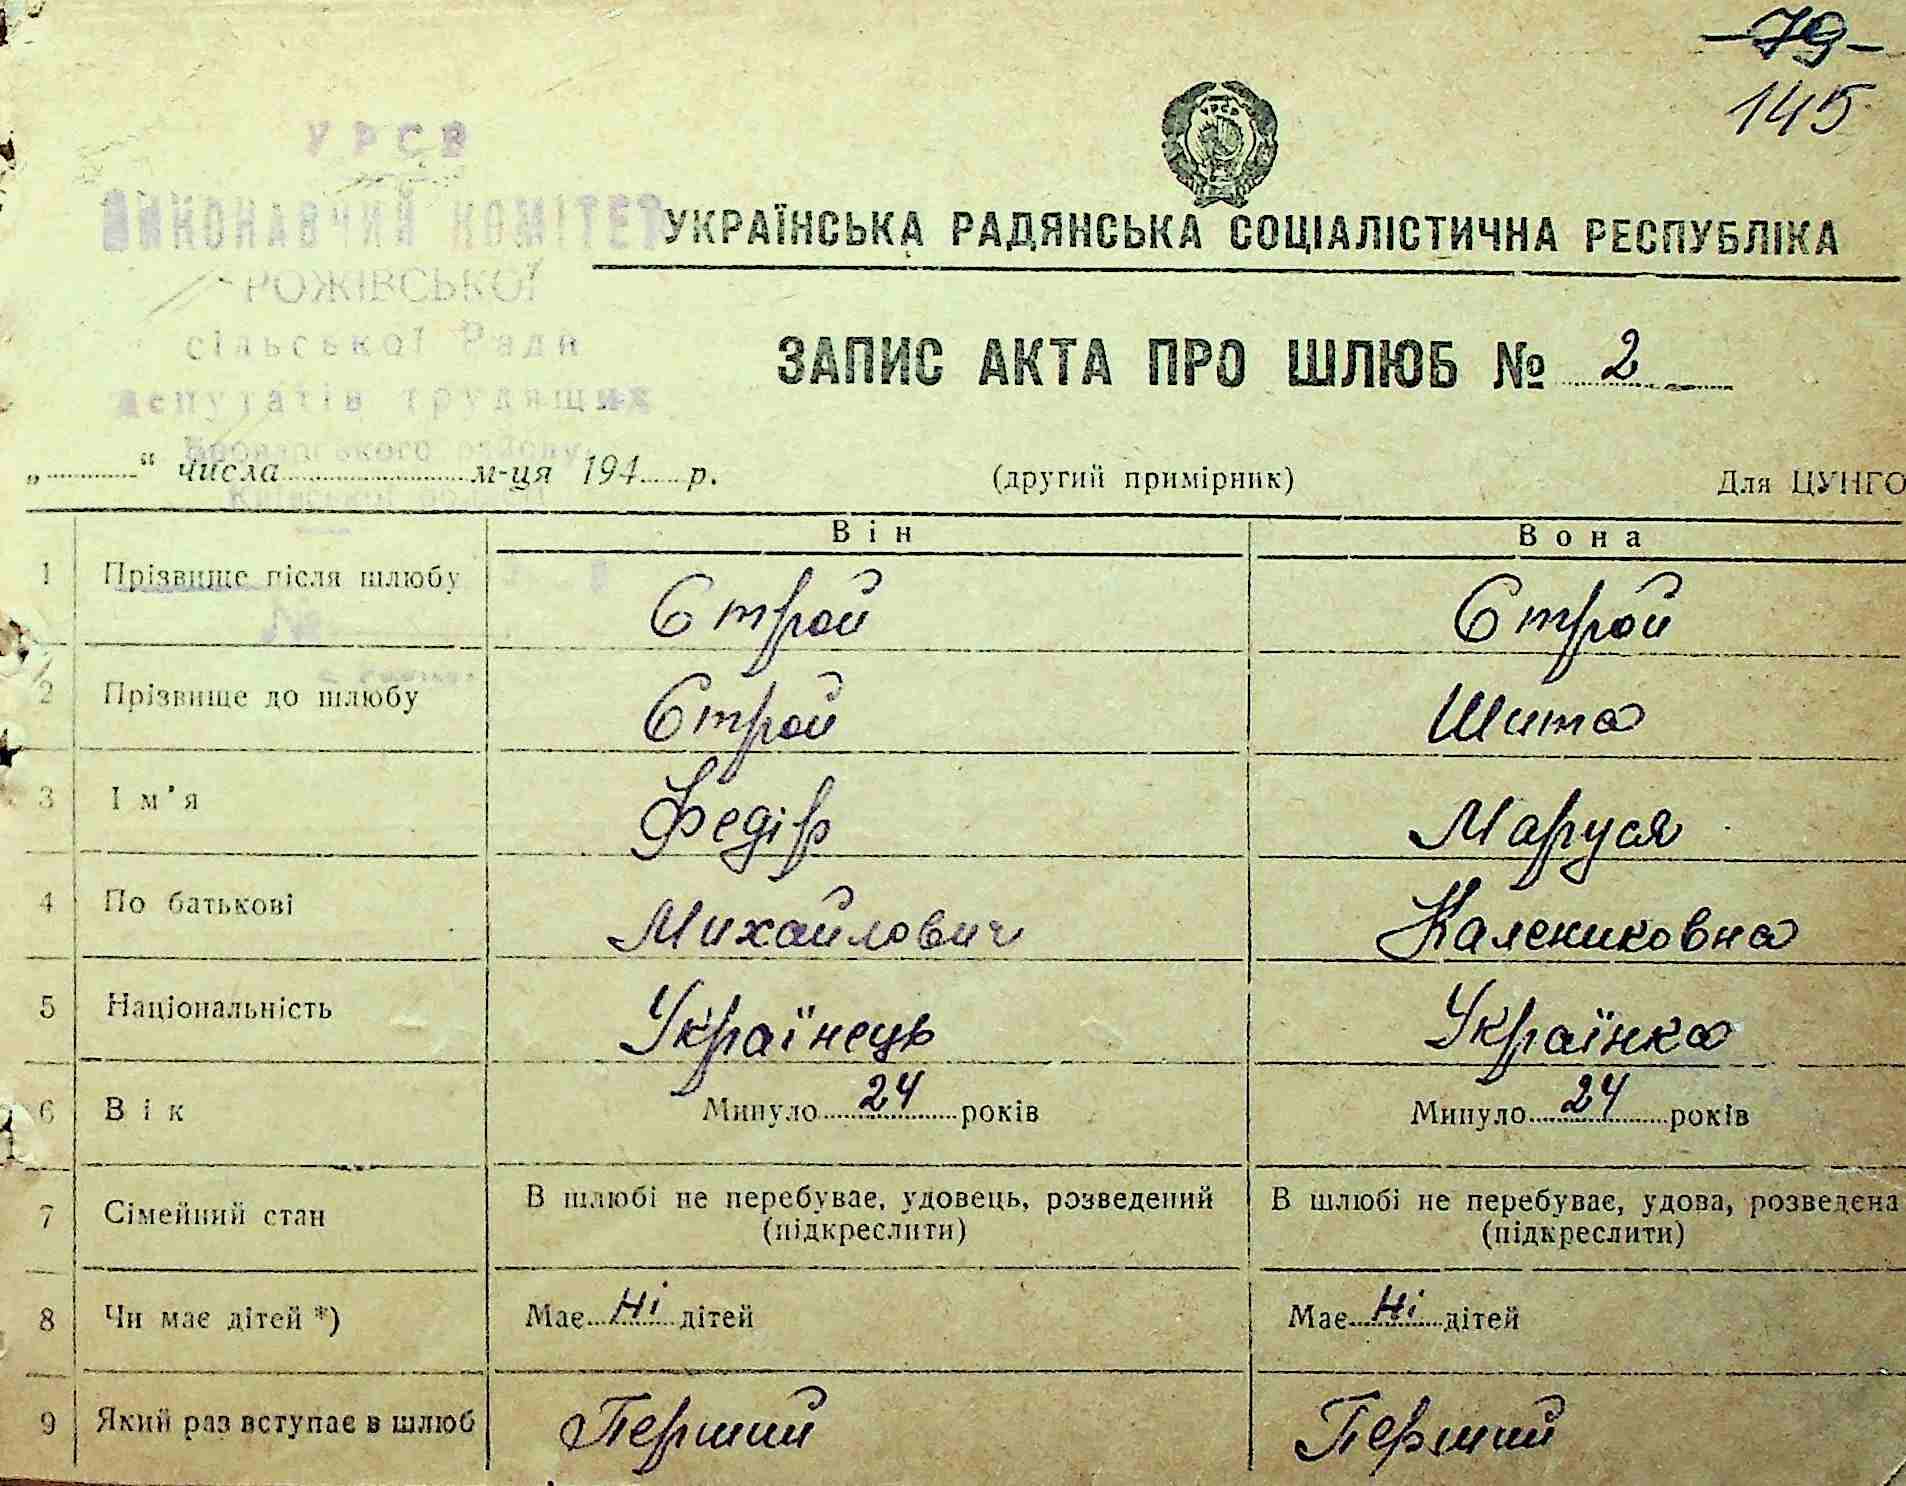 -79-
145
УРСР
ВИКОНАВЧИЙ КОМІТЕТ
РОЖІВСЬКОЇ
сільської Ради
депутатів трудящих
Броварського району
УКРАЇНСЬКА РАДЯНСЬКА СОЦІАЛІСТИЧНА РЕСПУБЛІКА
ЗАПИС АКТА ПРО ШЛЮБ № 2
„ “ числа м-ця 194 р. (другий примірник) Для ЦУНГО
Він Вона
1 Прізвище після шлюбу Строй Строй
2 Прізвище до шлюбу Строй Шита
3 Ім'я Федір Маруся
4 По батькові Михайлович Калениковна
5 Національність Українець Українка
6 Вік Минуло 24 років Минуло 24 років
7 Сімейний стан В шлюбі не перебуває, удовець, розведений (підкреслити) В шлюбі не перебуває, удова, розведена (підкреслити)
8 Чи має дітей *) Має Ні дітей Має Ні дітей
9 Який раз вступає в шлюб Перший Перший